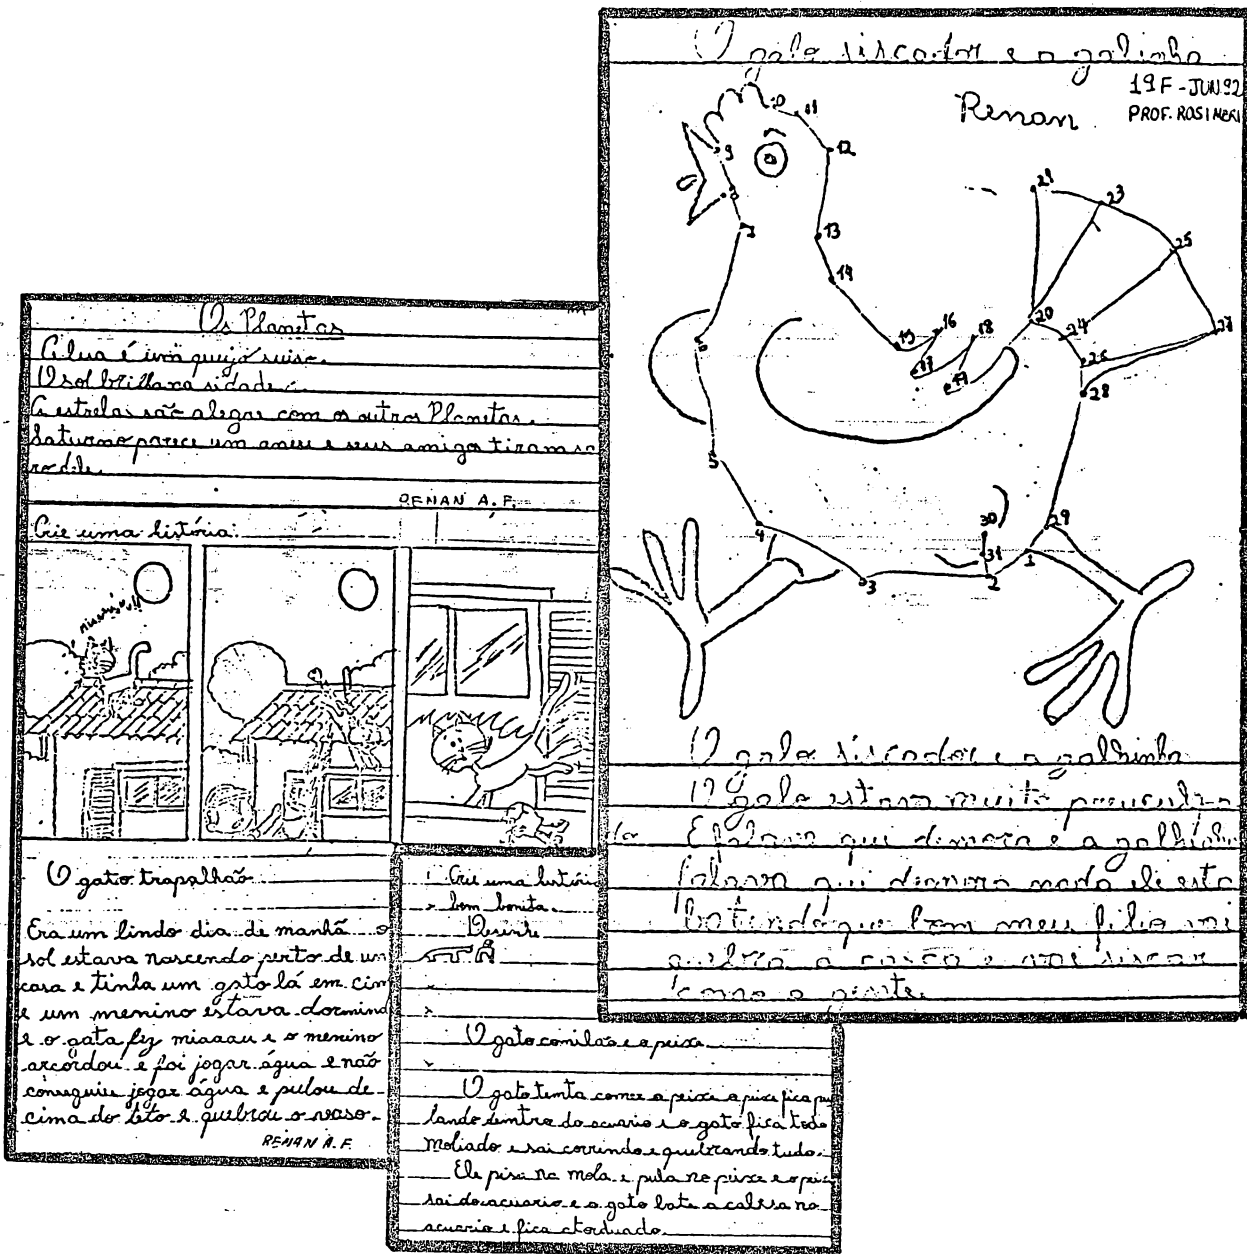 Os Planetas
A lua é um queijo suiso.
O sol brilhava sidade.
A estrelas são alegas com os outros Planetas.
Saturno parece um aneu e seus amigos tiram sa
ro dele.
RENAN A. F.
Crie uma história:
miauuu!!
O gato trapalhão
Era um lindo dia de manhã o
sol estava nascendo perto de um
casa e tinha um gato lá em cim
e um menino estava dormind
e o gata fez miaaau e o menino
arcordou e foi jogar água e não
conseguiu jogar água e pulou de
cima do teto e quebrou o vaso.
RENAN A. F.
Crie uma históri
bem bonita.
O gato comilão e o peixe
O gato tenta comer o peixe a pixe fica pu
lando dentro do acuario e o gato fica todo
moliado e sai correndo e quebrando tudo.
Ele pisa na mola e pula no peixe e o peix
sai do acuario e o gato bate a cabesa no
acuario e fica atorduado.
O galo siscador e a galinha
19F - JUN 92
Renan
PROF. ROSIMERI
9 8 7 5 4 3 2 1
10 11 12 13 14 15 16 17 18 17
20 21 23 24 25 26 27 28 29 30 31
O galo siscador e a galhinha
O galo estava muito preuculpa
do E falava qui demora e a galhinha
falava qui demora nada ele esta
batendo que bom meu filio vai
quebra a casca e vai siscar
como a gente.